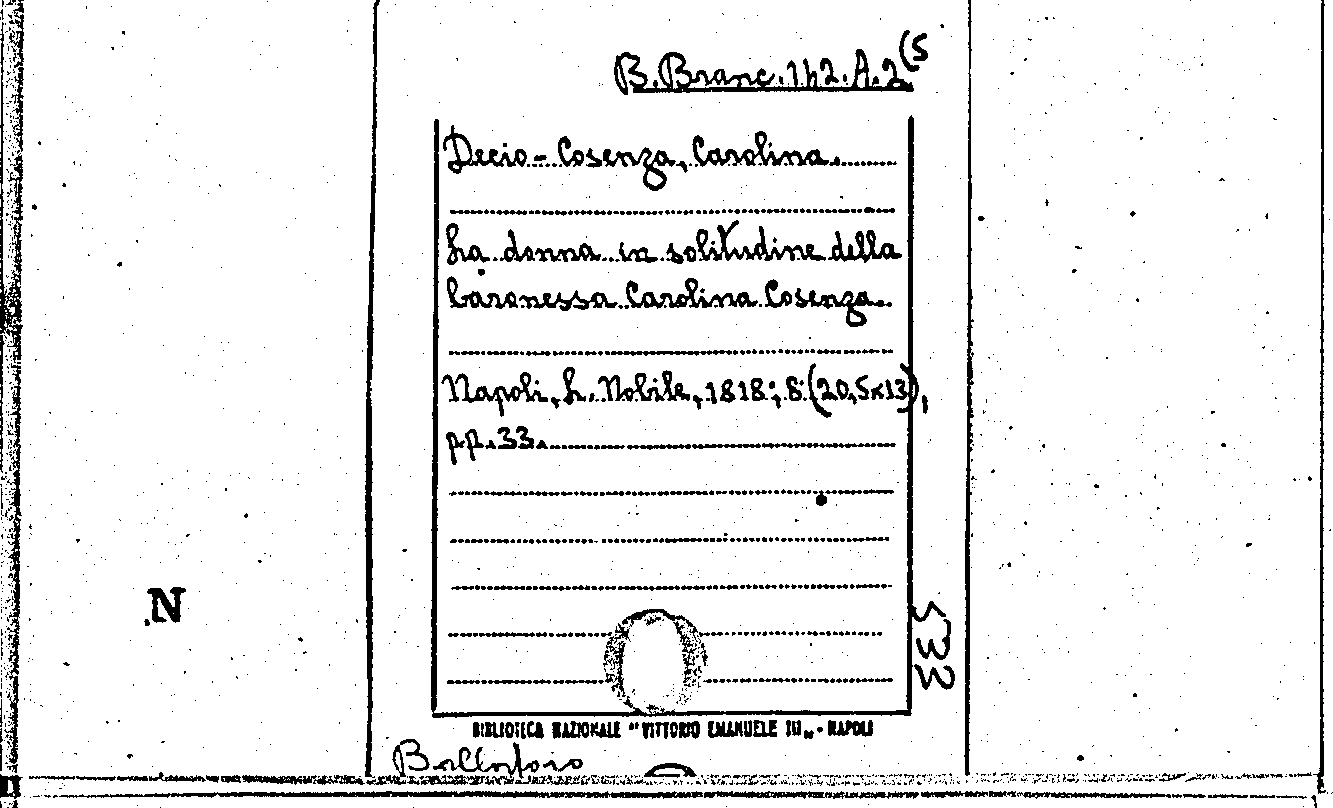 B. Branc. 142. A. 2(5
Decio - Cosenza, Carolina.
La donna in solitudine della
baronessa Carolina Cosenza.
Napoli, L. Nobile, 1818; 8. (20,5x13),
pp. 33.
533
N
BIBLIOTECA NAZIONALE "VITTORIO EMANUELE III" - NAPOLI